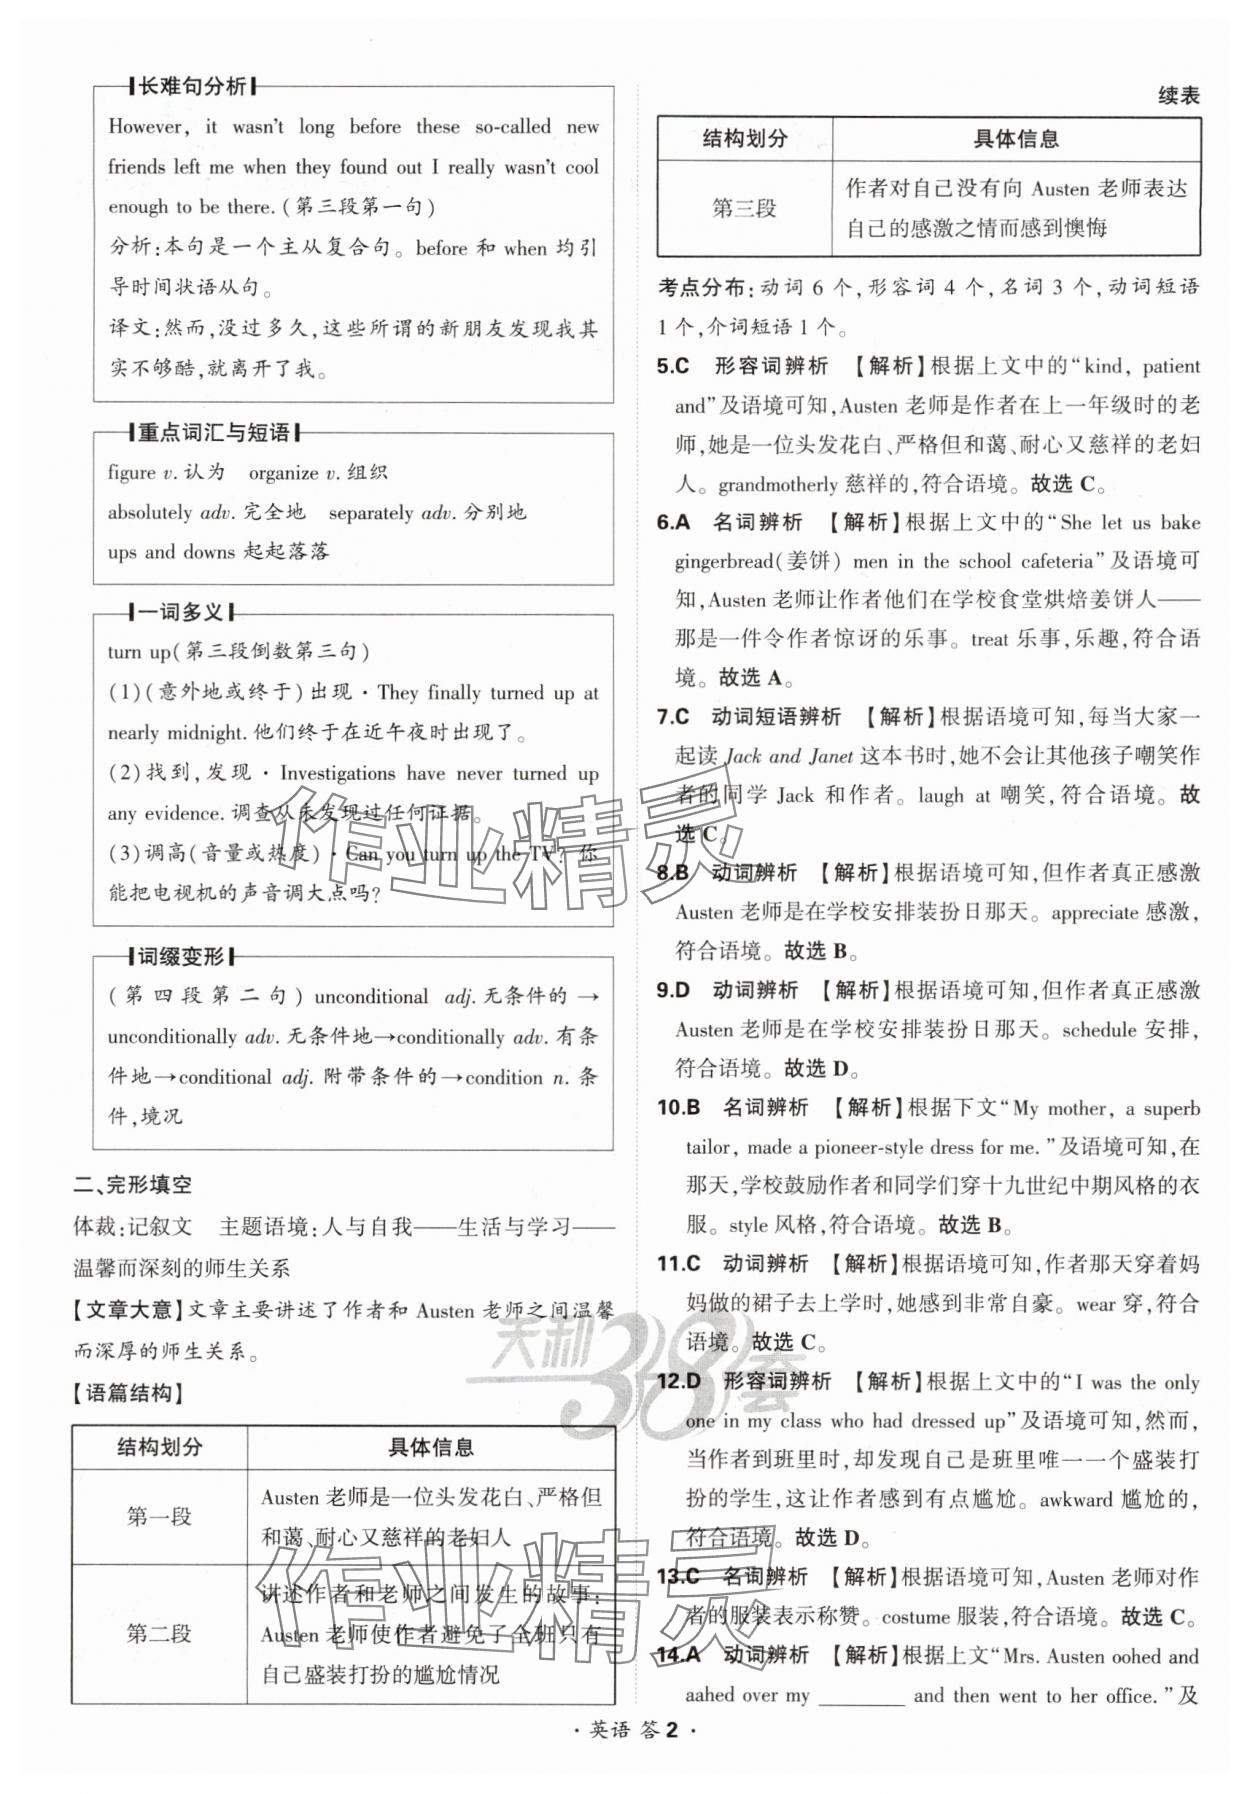 长难句分析
However, it wasn't long before these so-called new
friends left me when they found out I really wasn't cool
enough to be there.(第三段第一句)
分析:本句是一个主从复合句。before 和 when 均引
导时间状语从句。
译文:然而,没过多久,这些所谓的新朋友发现我其
实不够酷,就离开了我。
重点词汇与短语
figure v.认为 organize v.组织
absolutely adv.完全地 separately adv.分别地
ups and downs 起起落落
一词多义
turn up(第三段倒数第三句)
(1)(意外地或终于)出现·They finally turned up at
nearly midnight.他们终于在近午夜时出现了。
(2)找到,发现·Investigations have never turned up
any evidence.调查从未发现过任何证据。
(3)调高(音量或热度)·Can you turn up the TV?你
能把电视机的声音调大点吗?
词缀变形
(第四段第二句)unconditional adj.无条件的→
unconditionally adv.无条件地→conditionally adv.有条
件地→conditional adj.附带条件的→condition n.条
件,境况
二、完形填空
体裁:记叙文 主题语境:人与自我——生活与学习——
温馨而深刻的师生关系
【文章大意】文章主要讲述了作者和 Austen 老师之间温馨
而深厚的师生关系。
【语篇结构】
结构划分 具体信息
第一段 Austen 老师是一位头发花白、严格但
和蔼、耐心又慈祥的老妇人
第二段 讲述作者和老师之间发生的故事:
Austen 老师使作者避免了全班只有
自己盛装打扮的尴尬情况
续表
结构划分 具体信息
第三段 作者对自己没有向 Austen 老师表达
自己的感激之情而感到懊悔
考点分布:动词 6 个,形容词 4 个,名词 3 个,动词短语
1 个,介词短语 1 个。
5.C 形容词辨析 【解析】根据上文中的“kind, patient
and”及语境可知,Austen 老师是作者在上一年级时的老
师,她是一位头发花白、严格但和蔼、耐心又慈祥的老妇
人。grandmotherly 慈祥的,符合语境。故选 C。
6.A 名词辨析 【解析】根据上文中的“She let us bake
gingerbread(姜饼) men in the school cafeteria”及语境可
知,Austen 老师让作者他们在学校食堂烘焙姜饼人——
那是一件令作者惊讶的乐事。treat 乐事,乐趣,符合语
境。故选 A。
7.C 动词短语辨析 【解析】根据语境可知,每当大家一
起读 Jack and Janet 这本书时,她不会让其他孩子嘲笑作
者的同学 Jack 和作者。laugh at 嘲笑,符合语境。故
选 C。
8.B 动词辨析 【解析】根据语境可知,但作者真正感激
Austen 老师是在学校安排装扮日那天。appreciate 感激,
符合语境。故选 B。
9.D 动词辨析 【解析】根据语境可知,但作者真正感激
Austen 老师是在学校安排装扮日那天。schedule 安排,
符合语境。故选 D。
10.B 名词辨析 【解析】根据下文“My mother, a superb
tailor, made a pioneer-style dress for me.”及语境可知,在
那天,学校鼓励作者和同学们穿十九世纪中期风格的衣
服。style 风格,符合语境。故选 B。
11.C 动词辨析 【解析】根据语境可知,作者那天穿着妈
妈做的裙子去上学时,她感到非常自豪。wear 穿,符合
语境。故选 C。
12.D 形容词辨析 【解析】根据上文中的“I was the only
one in my class who had dressed up”及语境可知,然而,
当作者到班里时,却发现自己是班里唯一一个盛装打
扮的学生,这让作者感到有点尴尬。awkward 尴尬的,
符合语境。故选 D。
13.C 名词辨析 【解析】根据语境可知,Austen 老师对作
者的服装表示称赞。costume 服装,符合语境。故选 C。
14.A 动词辨析 【解析】根据上文“Mrs. Austen oohed and
aahed over my ________ and then went to her office.”及
·英语 答 2·
作业精灵
天利38套
作业精灵